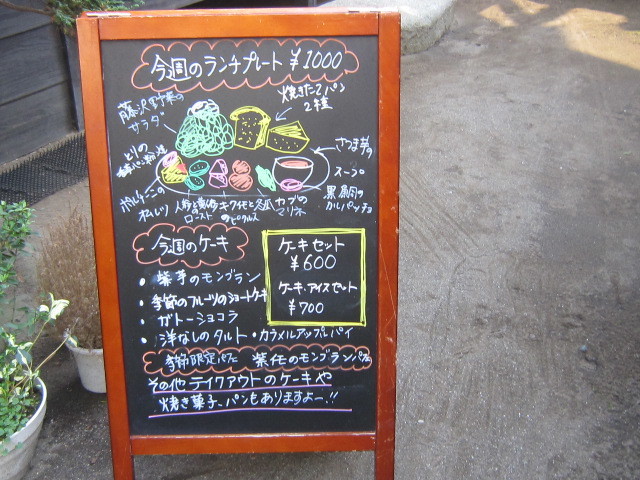 今週のランチプレート ¥1000
藤沢野菜の
サラダ
焼きたてパン
2種
とりの
さつま芋の
スープ
ポルチーニの
オムレツ
人参と
ロースト
キクイモと
のピクルス
カブの
マリネ
黒鯛の
カルパッチョ
今週のケーキ
・紫芋のモンブラン
・季節のフルーツのショートケーキ
・ガトーショコラ
・洋なしのタルト・カラメルアップルパイ
ケーキセット
¥600
ケーキ・アイスセット
¥700
季節限定パフェ 紫イモのモンブランパフェ
その他テイクアウトのケーキや
焼き菓子、パンもありますよー!!